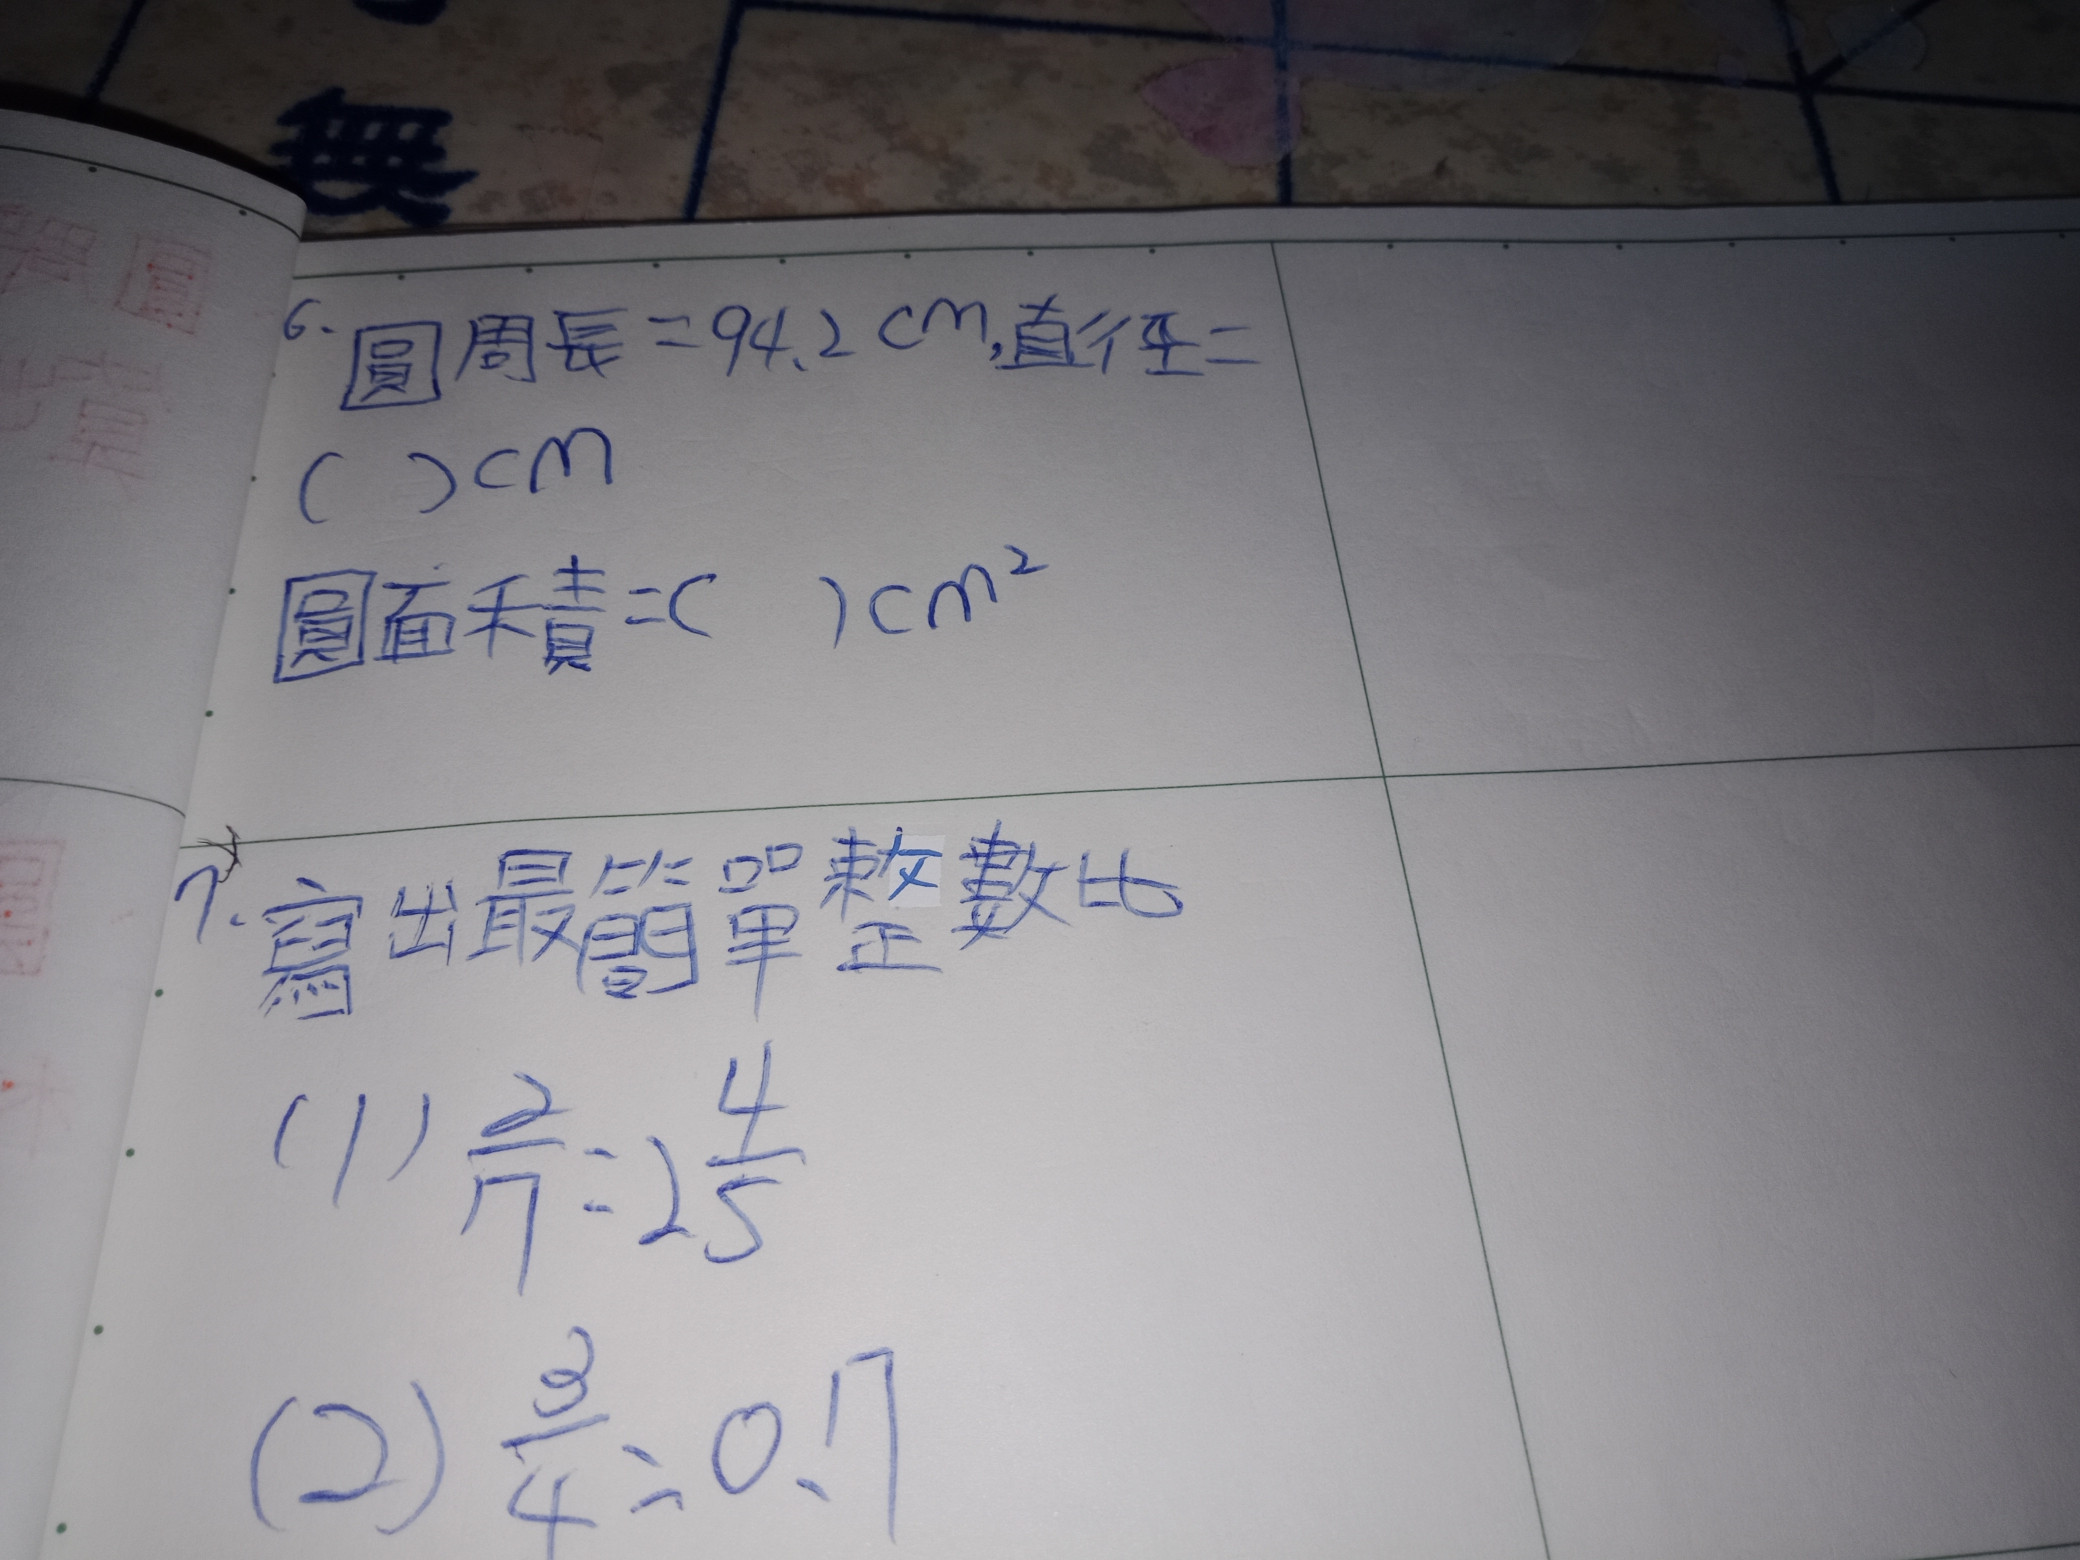 無
6. 圓周長=94.2cm,直徑=
( )cm
圓面積=( )cm²
7. 寫出最簡單整數比
(1) 2/7 : 2 4/5
(2) 3/4 : 0.7